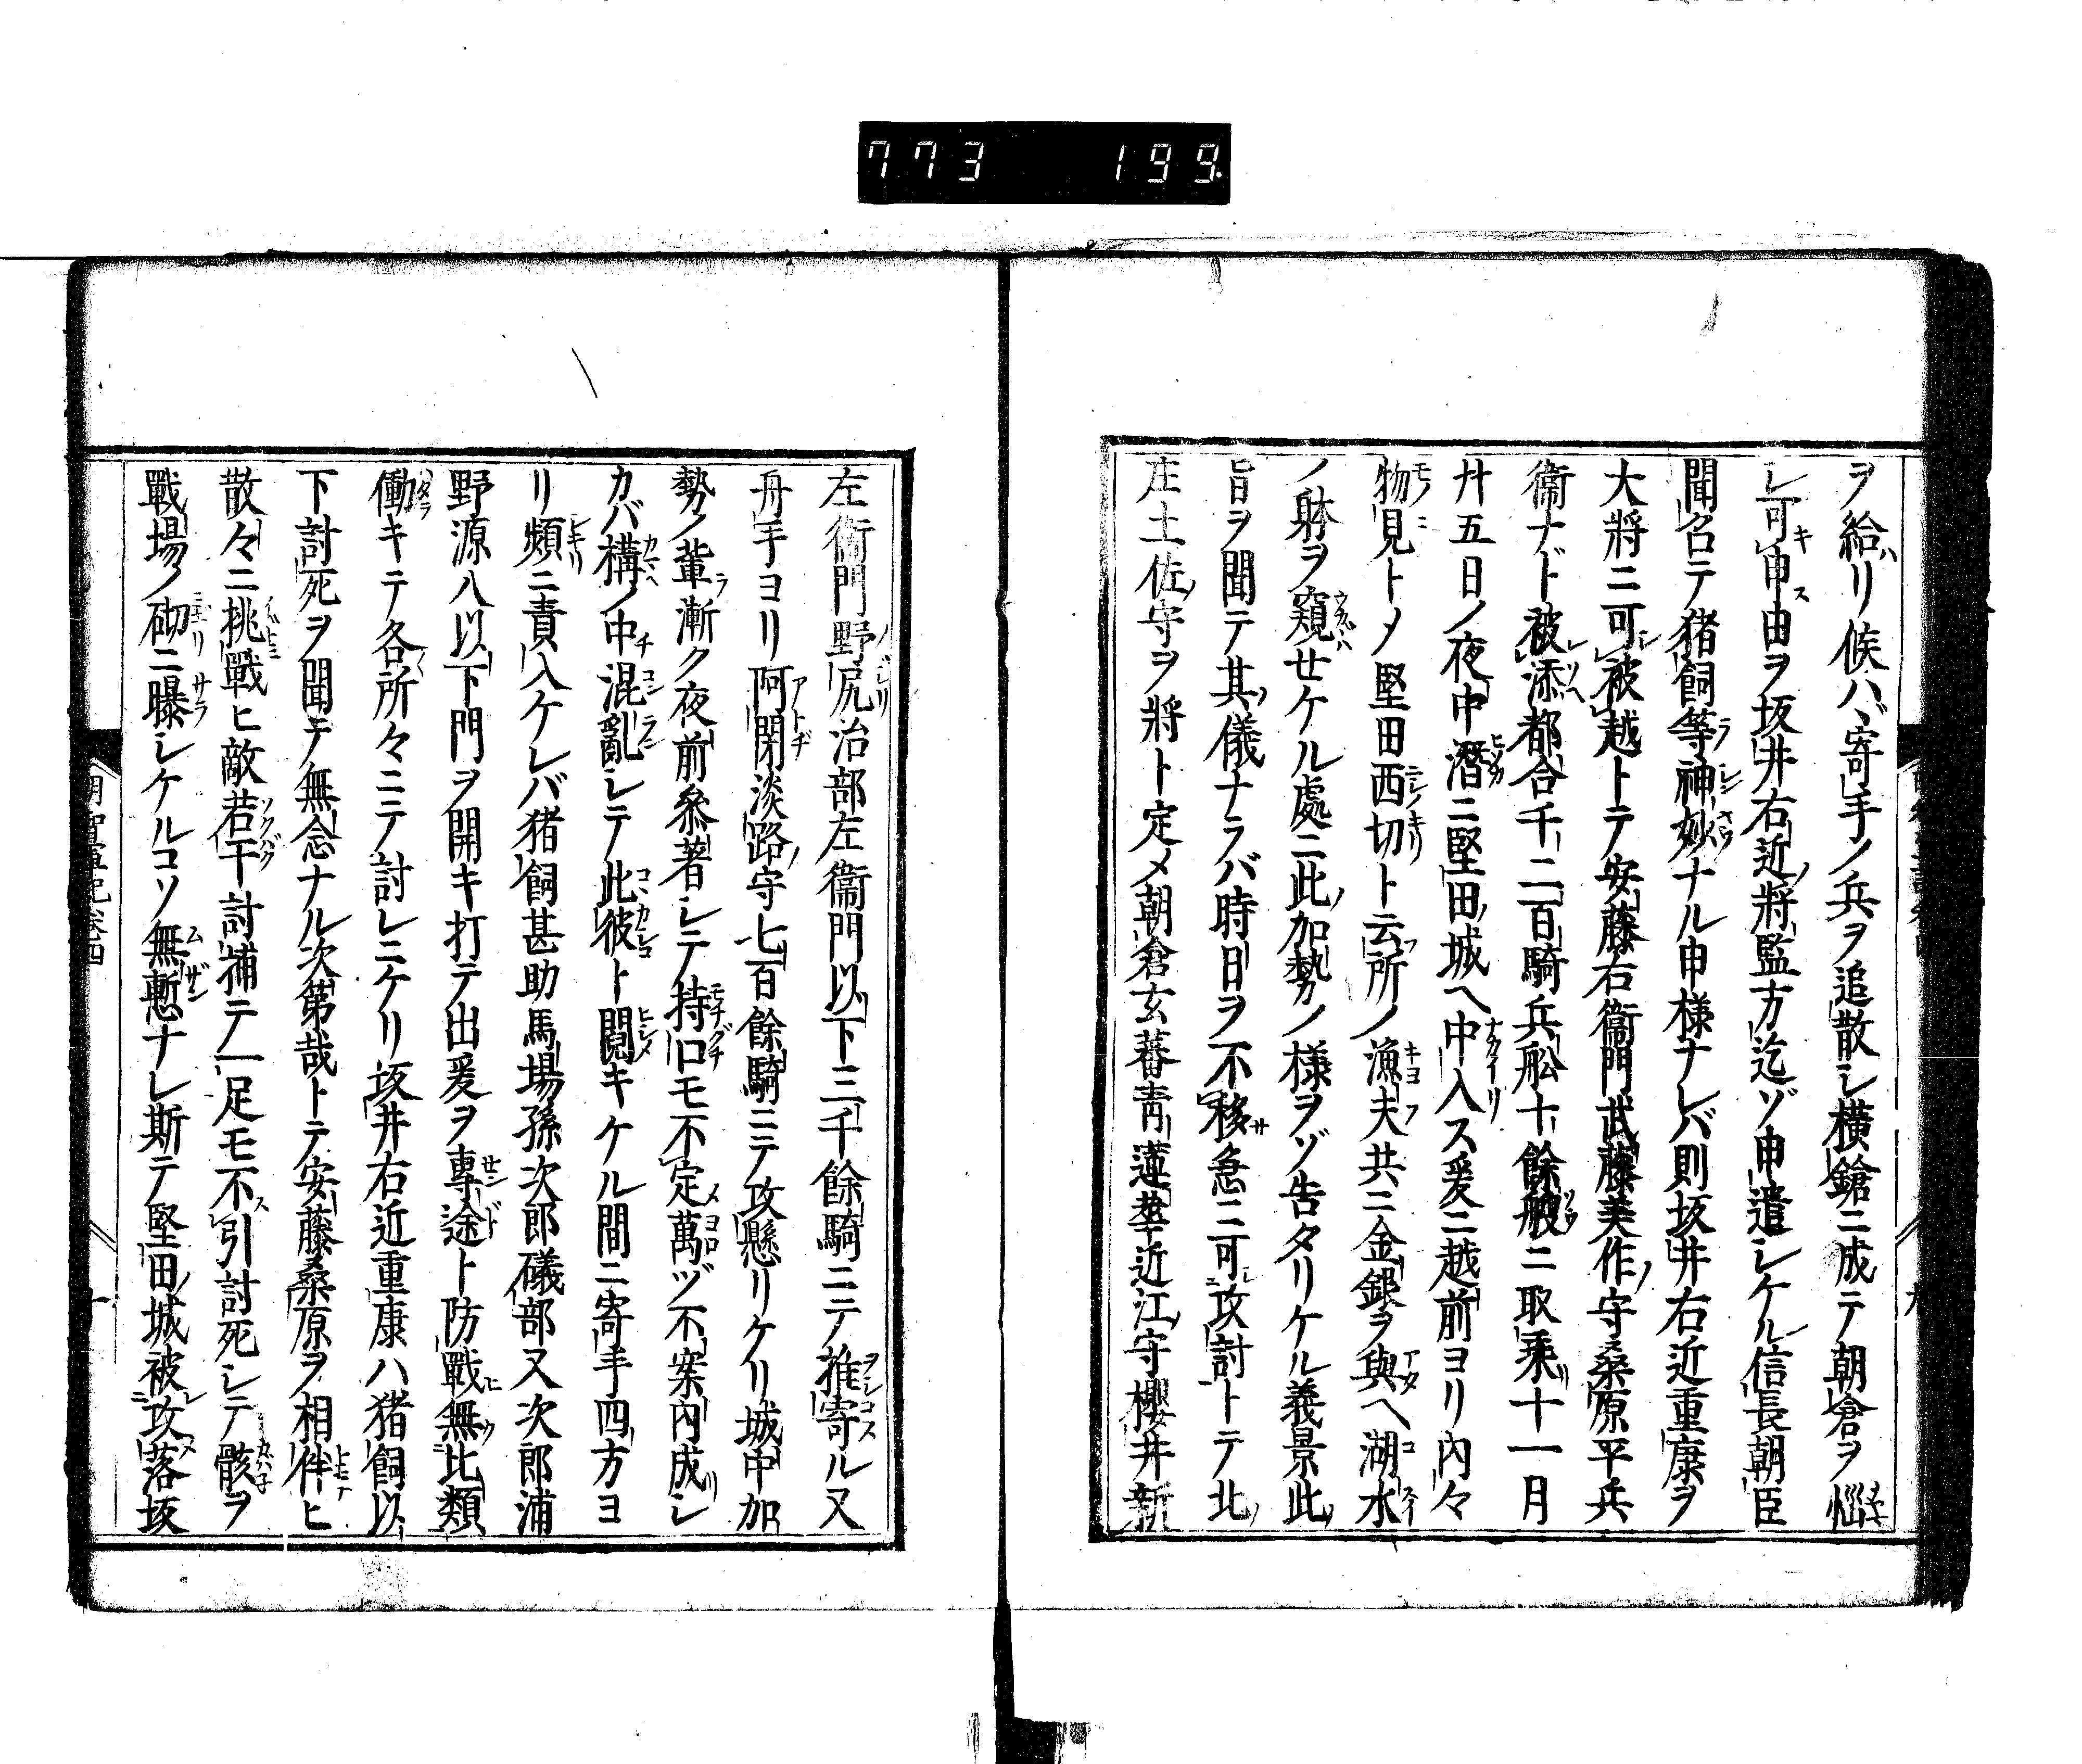 773 199
ヲ給リ候ハヾ寄手ノ兵ヲ追散シ横鎗ニ成テ朝倉ヲ惱
シ可申由ヲ坂井右近將監方迄ゾ申遣シケル信長朝臣
聞召テ猪飼等神妙ナル申様ナレバ則坂井右近重康ヲ
大將ニ可被越トテ安藤右衞門武藤美作守桑原平兵
衞ナド被添都合千二百騎兵舩十餘艘ニ取乗十一月
廾五日ノ夜中潜ニ堅田城ヘ中入ス爰ニ越前ヨリ内々
物見トメ堅田西切ト云所ノ漁夫共ニ金銀ヲ與ヘ湖水
ノ躰ヲ窺セケル處ニ此加勢ノ様ヲゾ告タリケル義景此
旨ヲ聞テ其儀ナラバ時日ヲ不移急ニ可攻討トテ北
庄土佐守ヲ將ト定メ朝倉玄蕃青蓮華近江守櫻井新
左衞門野尻治部左衞門以下三千餘騎ニテ推寄ル又
舟手ヨリ阿閉淡路守七百餘騎ニテ攻懸リケリ城中加
勢ノ輩漸ク夜前參著シテ持口モ不定萬ヅ不案内成シ
カバ構ノ中混亂シテ此彼ト鬩キケル間ニ寄手四方ヨ
リ頻ニ責入ケレバ猪飼甚助馬場孫次郎礒部又次郎浦
野源八以下門ヲ開キ打テ出爰ヲ專途ト防戰無比類
働キテ各所々ニテ討レニケリ坂井右近重康ハ猪飼以
下討死ヲ聞テ無念ナル次第哉トテ安藤桑原ヲ相伴ヒ
散々ニ挑戰ヒ敵若干討捕テ一足モ不引討死シテ骸ヲ
戰場ノ砌ニ曝シケルコソ無慙ナレ斯テ堅田城被攻落坂